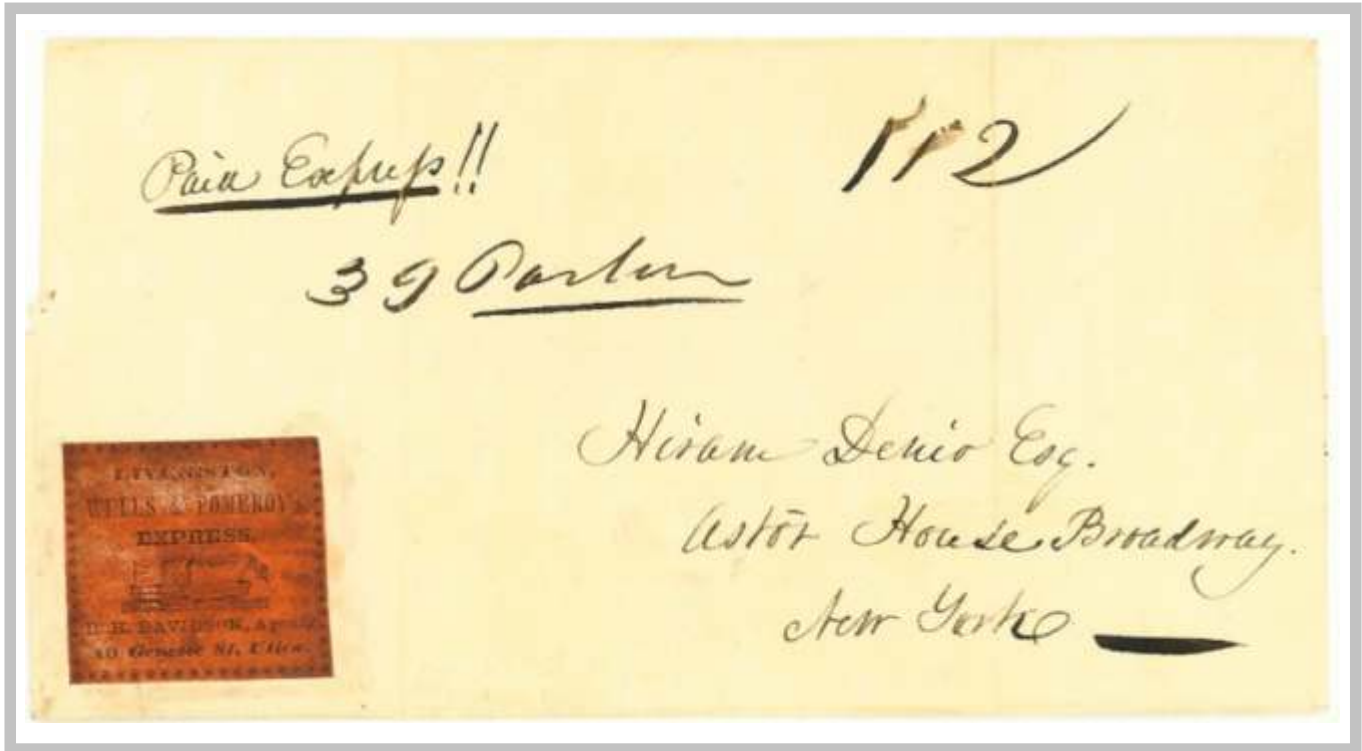 Paid Express!!
112
3 9
Hiram Denio Esq.
Astor House Broadway.
New York
LIVINGSTON,
WELLS & POMEROY'S
EXPRESS.
DAVIDSON, Agent
40 Genesee St, Utica.